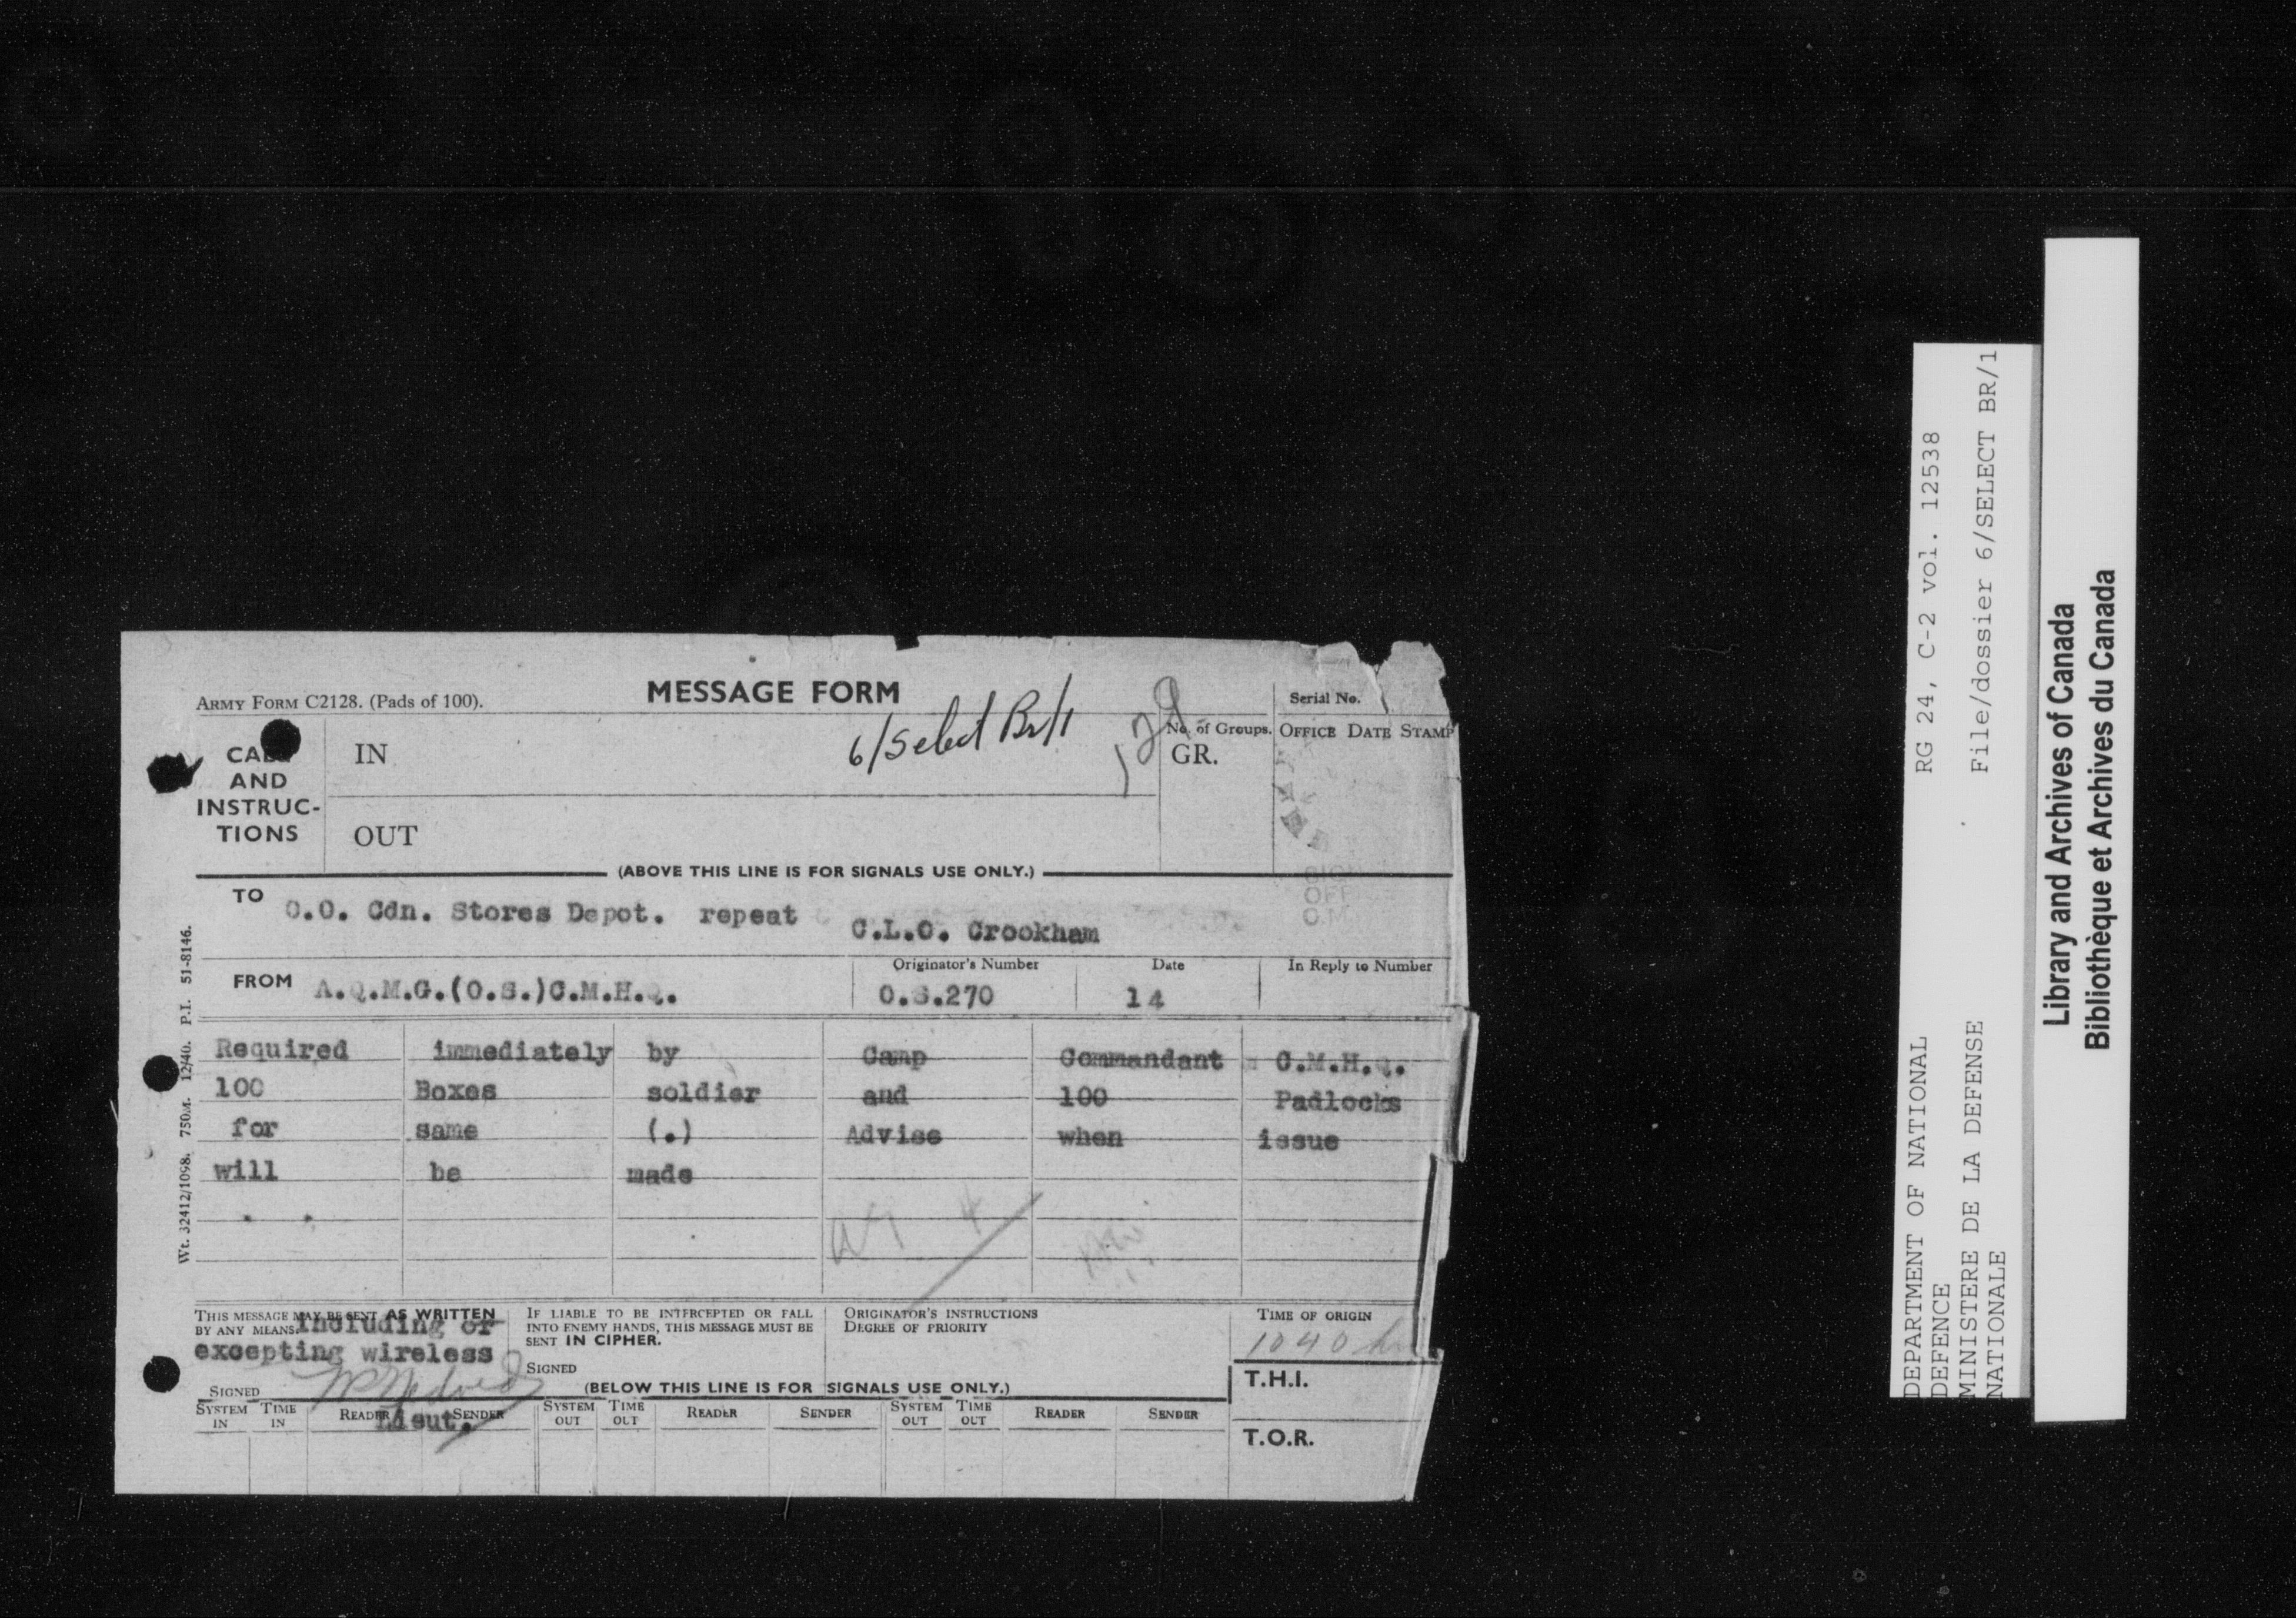 ARMY FORM C2128. (Pads of 100).
MESSAGE FORM
Serial No.
6/Select Br/1
CALL AND INSTRUC-TIONS
IN
No. of Groups.
GR.
OFFICE DATE STAMP
OUT
(ABOVE THIS LINE IS FOR SIGNALS USE ONLY.)
TO O.O. Cdn. Stores Depot. repeat C.L.O. Crookham
FROM A.Q.M.G.(O.S.)C.M.H.Q.
Originator's Number
O.S.270
Date
14
In Reply to Number
Required immediately by Camp Commandant C.M.H.Q.
100 Boxes soldier and 100 Padlocks
for same (.) Advise when issue
will be made
THIS MESSAGE MAY BE SENT AS WRITTEN
BY ANY MEANS. Including or
excepting wireless
SIGNED
Lieut.
IF LIABLE TO BE INTERCEPTED OR FALL
INTO ENEMY HANDS, THIS MESSAGE MUST BE
SENT IN CIPHER.
SIGNED
ORIGINATOR'S INSTRUCTIONS
DEGREE OF PRIORITY
TIME OF ORIGIN
1040 hrs
(BELOW THIS LINE IS FOR SIGNALS USE ONLY.)
T.H.I.
SYSTEM IN TIME IN READER SENDER SYSTEM OUT TIME OUT READER SENDER SYSTEM OUT TIME OUT READER SENDER
T.O.R.
Wt. 32412/1098. 750M. 12/40. P.I. 51-8146.
DEPARTMENT OF NATIONAL
DEFENCE
MINISTERE DE LA DEFENSE
NATIONALE
RG 24, C-2 vol. 12538
File/dossier 6/SELECT BR/1
Library and Archives of Canada
Bibliothèque et Archives du Canada